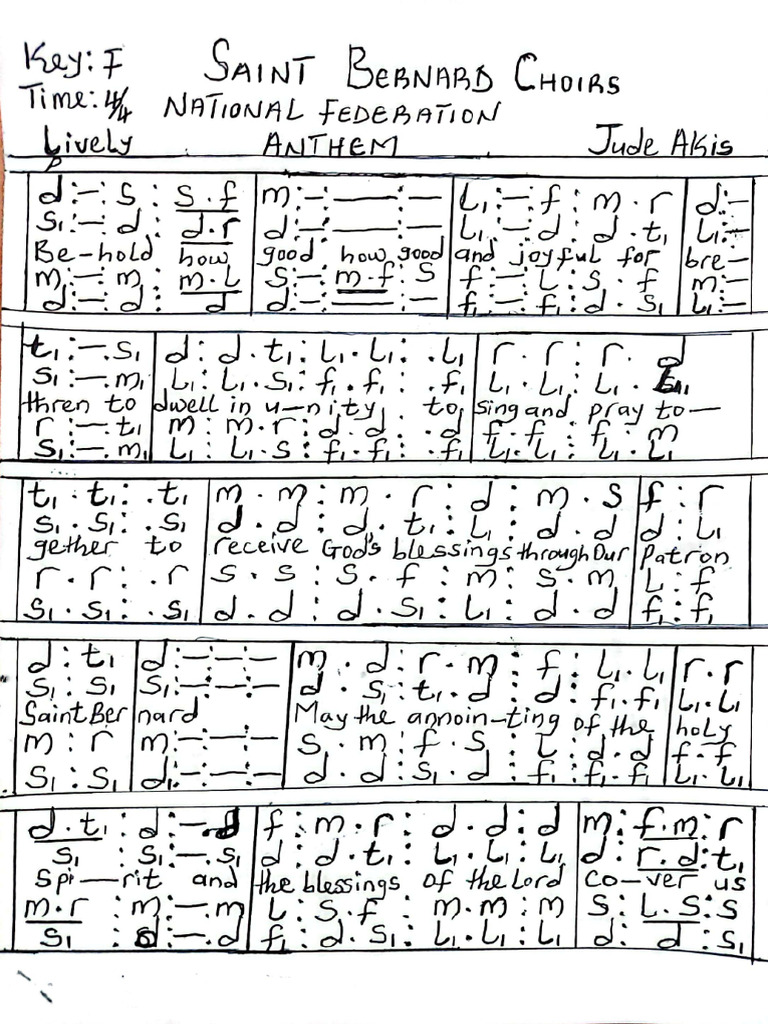 Key: F SAINT BERNARD CHOIRS
Time: 4/4 NATIONAL FEDERATION
Lively ANTHEM Jude Akis
p
d :— : s : s . f | m :— : — :— | l₁ :— : f : m . r | d :—
s₁ :— : d : d . r | d :— : — :— | l₁ :— : d : d . t₁ | l₁ :—
Be-hold how | good how good | and joyful for | bre—
m :— : m : m . l | s :— : m . f : s | f :— : l : s . f | m :—
d :— : d : d | d :— : — :— | f₁ :— : f₁ : d . s₁ | l₁ :—
t₁ :— . s₁ | d : d . t₁ : l₁ . l₁ : . l₁ | r . r : r . d
s₁ :— . m₁ | l₁ : l₁ . s₁ : f₁ . f₁ : . f₁ | l₁ . l₁ : l₁ . s₁
thren to | dwell in u-nity to | sing and pray to—
r :— . t₁ | m : m . r : d . d : . d | f . f : f . m
s₁ :— . m₁ | l₁ : l₁ . s : f₁ . f₁ : . f₁ | l₁ . l₁ : l₁ . l₁
t₁ . t₁ : . t₁ | m . m : m . r : d : m . s | f : r
s₁ . s₁ : . s₁ | d . d : d . t₁ : l₁ : d . d | d : l₁
gether to | receive God's blessings through Our | Patron
r . r : . r | s . s : s . f : m : s . m | l : f
s₁ . s₁ : . s₁ | d . d : d . s₁ : l₁ : d . d | f₁ : f₁
d : t₁ | d :— :— :— | m . d : r . m : f : l₁ . l₁ | r . r
s₁ : s₁ | s₁ :— :— :— | d . s₁ : t₁ . d : d : f₁ . f₁ | l₁ . l₁
Saint Ber | nard | May the annoin-ting of the | holy
m : r | m :— :— :— | s . m : f . s : l : d . d | f . f
s₁ : s₁ | d₁ :— :— :— | d . d : s₁ . d : f₁ : f₁ . f₁ | l₁ . l₁
d . t₁ : d :— . d | f : m . r : d . d : d | m : f . m : r
s₁ : s₁ :— . s₁ | d : d . t₁ : l₁ . l₁ : l₁ | d : r . d : t₁
Spi—rit and | the blessings of the Lord | co-ver us
m . r : m :— . m | l : s . f : m . m : m | s : l . s : s
s₁ : d :— . d | f₁ : d . s₁ : l₁ . l₁ : l₁ | d : d : s₁